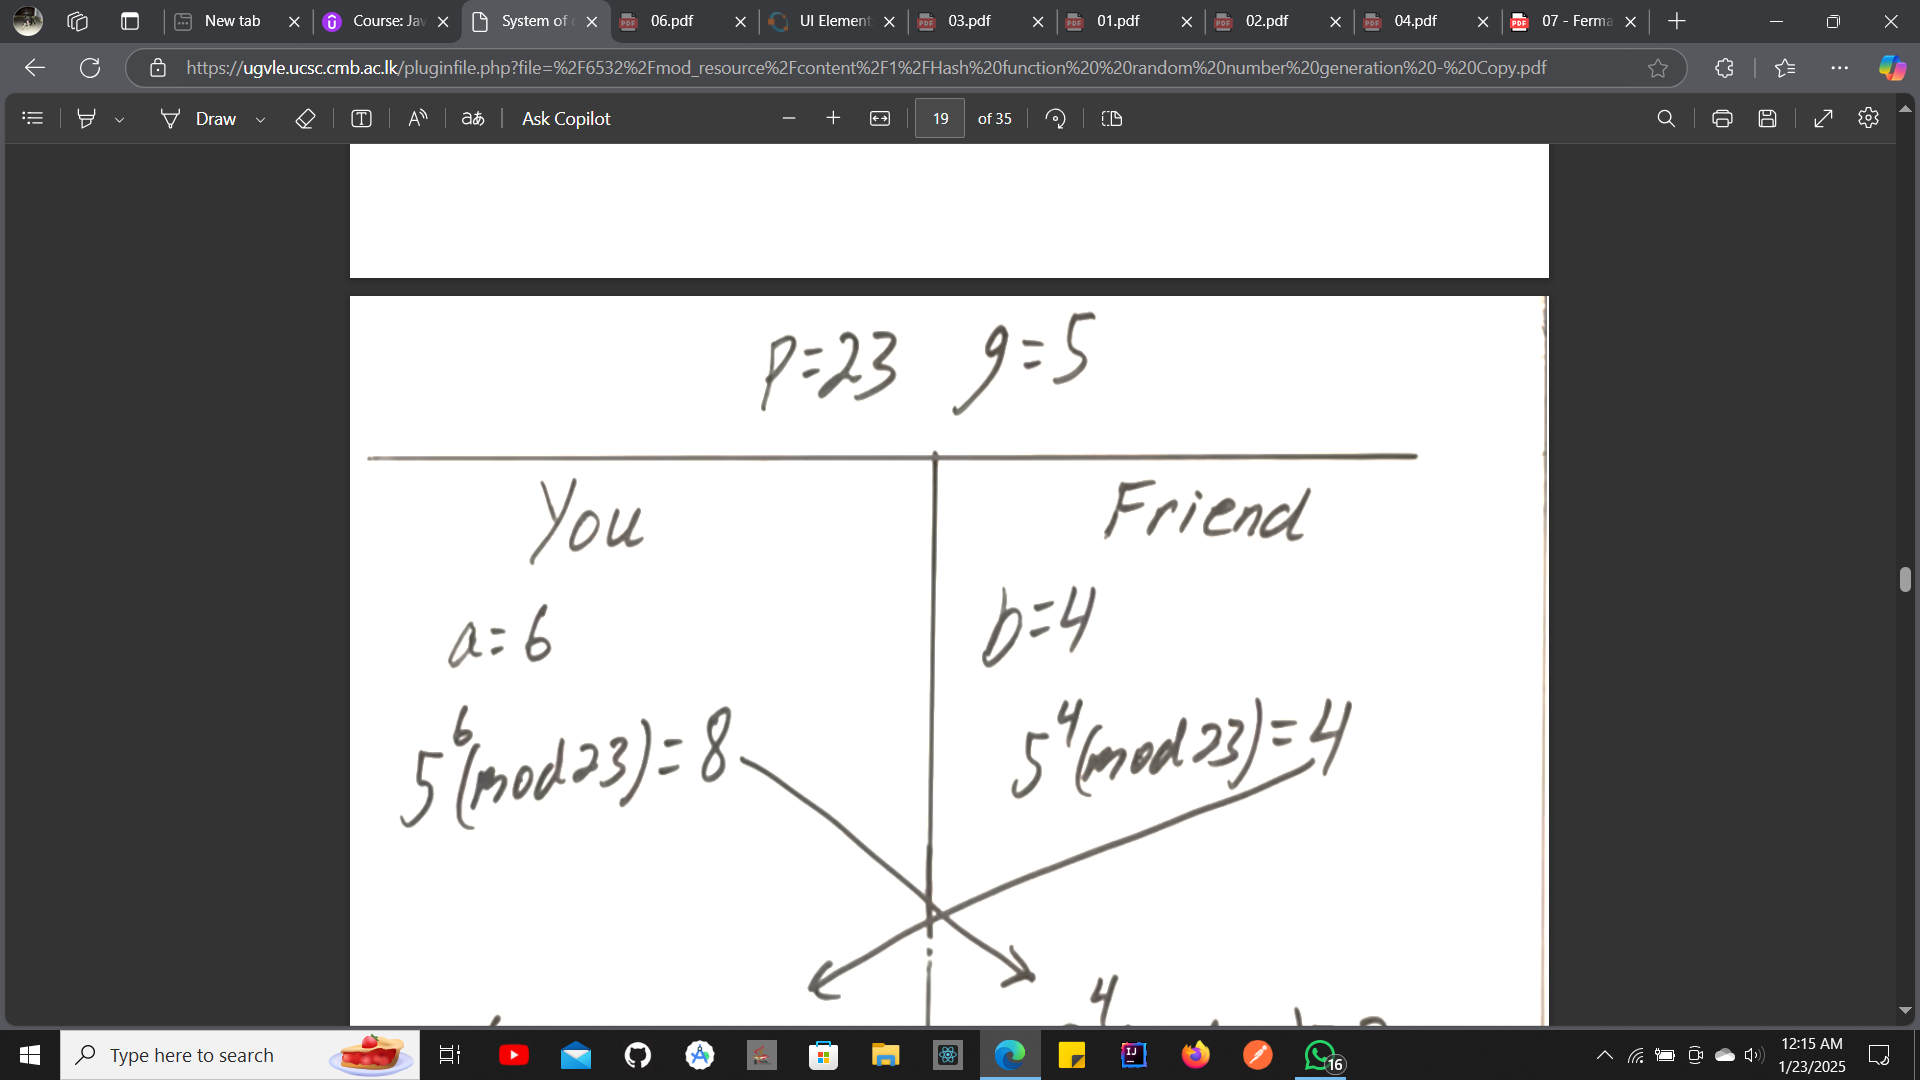 New tab
Course: Jav
System of
06.pdf
UI Element
03.pdf
01.pdf
02.pdf
04.pdf
07 - Ferma
https://ugvle.ucsc.cmb.ac.lk/pluginfile.php?file=%2F6532%2Fmod_resource%2Fcontent%2F1%2FHash%20function%20%20random%20number%20generation%20-%20Copy.pdf
Draw
Ask Copilot
19 of 35
p=23 g=5
You Friend
a=6 b=4
5^6(mod23)=8 5^4(mod23)=4
4
Type here to search
16
12:15 AM
1/23/2025